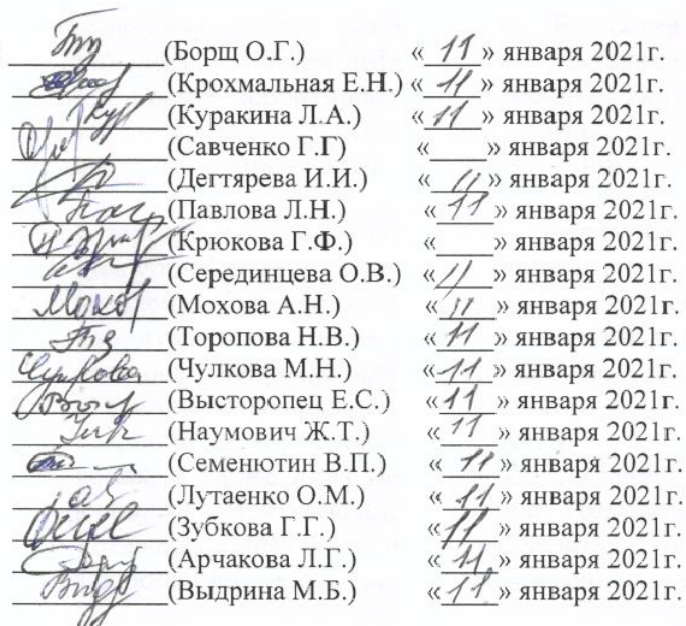 (Борщ О.Г.) « 11 » января 2021г.
(Крохмальная Е.Н.) « 11 » января 2021г.
(Куракина Л.А.) « 11 » января 2021г.
(Савченко Г.Г) «____» января 2021г.
(Дегтярева И.И.) « 11 » января 2021г.
(Павлова Л.Н.) « 11 » января 2021г.
(Крюкова Г.Ф.) «____» января 2021г.
(Серединцева О.В.) « 11 » января 2021г.
Мохов (Мохова А.Н.) « 11 » января 2021г.
(Торопова Н.В.) « 11 » января 2021г.
Чулкова (Чулкова М.Н.) « 11 » января 2021г.
(Высторопец Е.С.) « 11 » января 2021г.
(Наумович Ж.Т.) « 11 » января 2021г.
(Семенютин В.П.) « 11 » января 2021г.
(Лутаенко О.М.) « 11 » января 2021г.
(Зубкова Г.Г.) « 11 » января 2021г.
(Арчакова Л.Г.) « 11 » января 2021г.
(Выдрина М.Б.) « 11 » января 2021г.